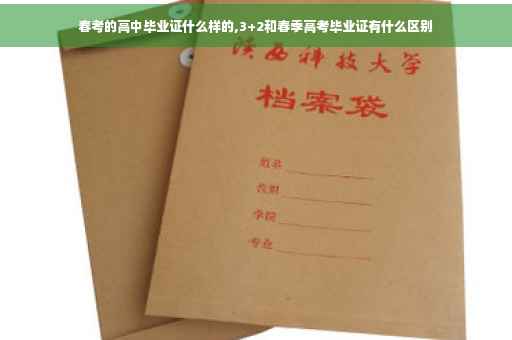 春考的高中毕业证什么样的,3+2和春季高考毕业证有什么区别
陕西科技大学
档案袋
姓名
学院
专业